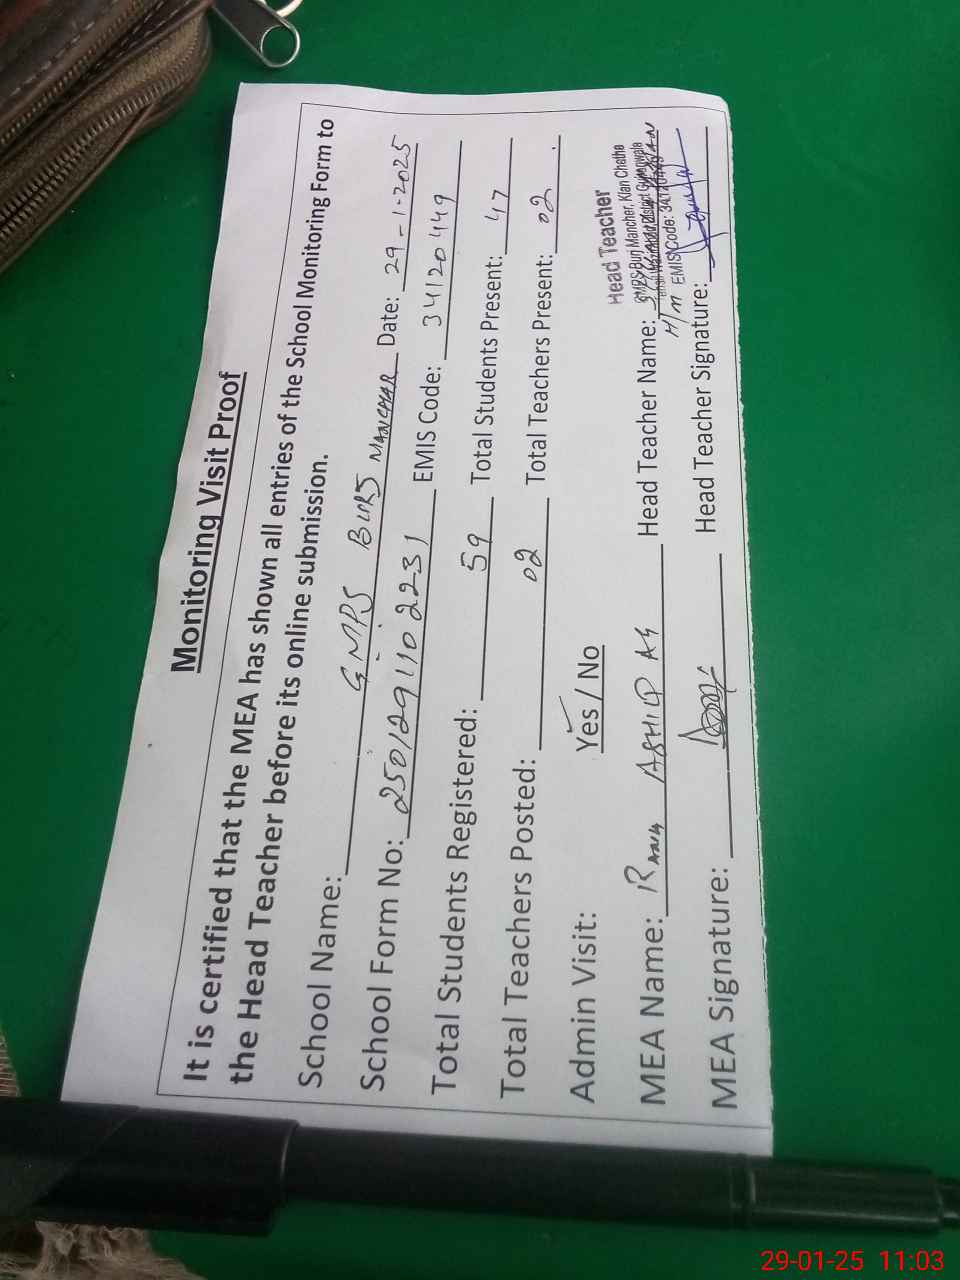 Monitoring Visit Proof
It is certified that the MEA has shown all entries of the School Monitoring Form to
the Head Teacher before its online submission.
School Name: GMPS BURJ MANCHAR Date: 29-1-2025
School Form No: 2501291102231 EMIS Code: 34120449
Total Students Registered: 59 Total Students Present: 47
Total Teachers Posted: 02 Total Teachers Present: 02
Admin Visit: Yes / No
Head Teacher
GMPS Burj Mancher, Klan Chatha
MEA Name: Rana ASHIQ Head Teacher Name:
H/M EMIS Code: 34120449
MEA Signature: Head Teacher Signature:
29-01-25 11:03